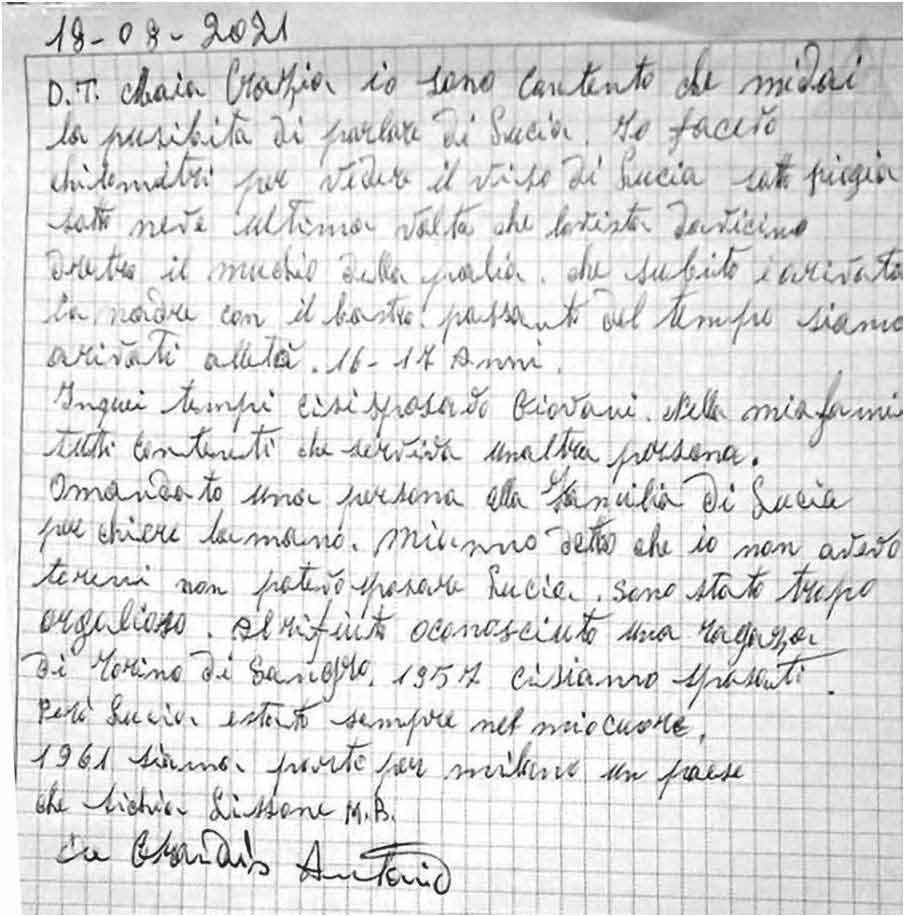 18-08-2021
D.T. Maia Grazia io sono contento che midai
la pusibita di parlare di Lucia. Io facevo
chilometri per vedere il viso di Lucia sott piogia
sotto neve ultima volta che lovista davicino
dretro il muchio della palia. che subito e arivata
la madre con il bastro. passanto del tempo siamo
arivati alletà. 16-17 Anni.
Inquei tempi cisisposavo Giovani. Nella miafami
tutti contenti che serviva unaltra persona.
Omandato una persona alla Familia di Lucia
per chiere lamano. Mianno detto che io non avevo
tereni non potevo sposare Lucia. Sono stato tropo
orgulioso. Al rifiuto oconosciuto una ragaza
di Torino di Sangro. 1957 cisiamo sposati.
Però Lucia estato sempre nel miocuore.
1961 siamo parte per milano un paese
che sichia Lissone M.B.
Antonio